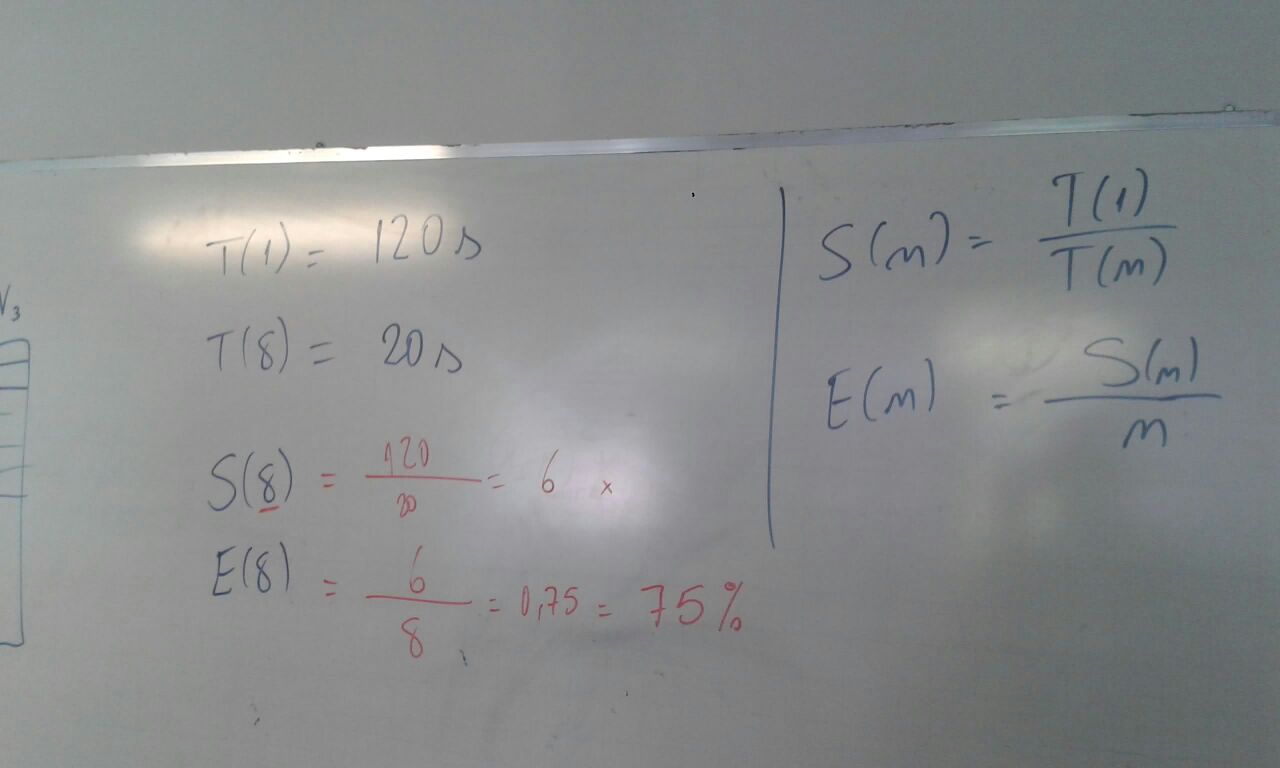 T(1) = 120 s
T(8) = 20 s
S(8) = 120/20 = 6 x
E(8) = 6/8 = 0,75 = 75%
S(m) = T(1)/T(m)
E(m) = S(m)/m
V3